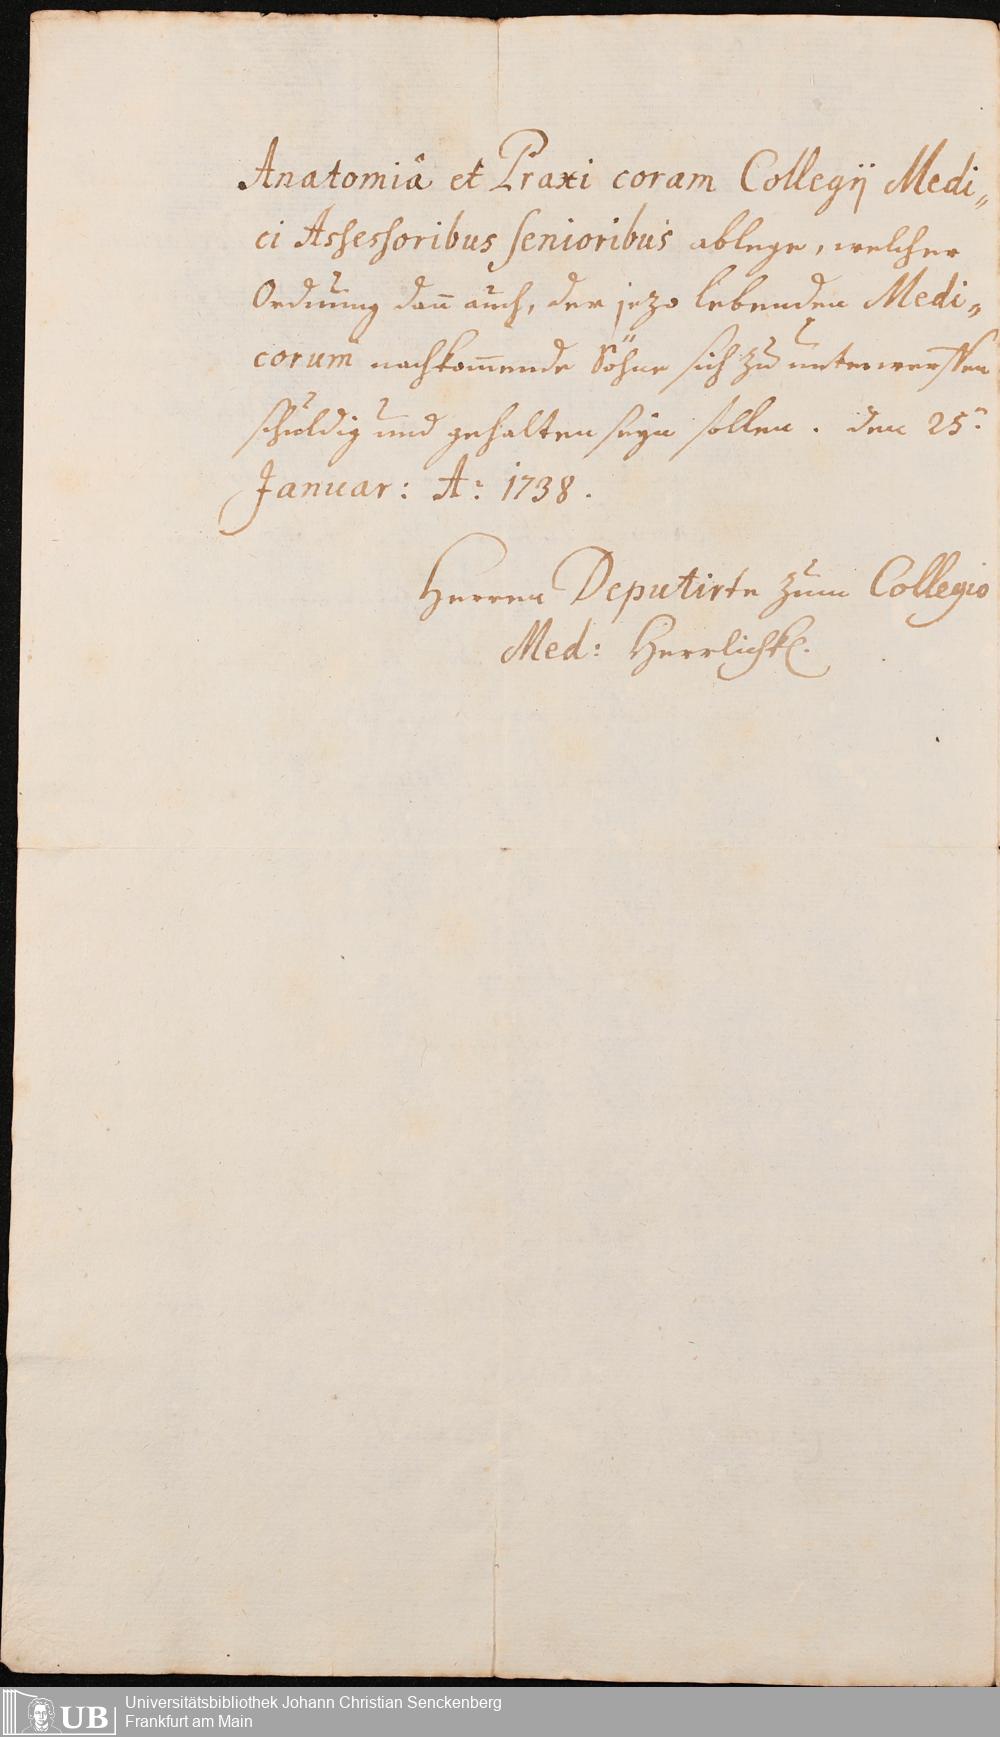 Anatomiâ et Praxi coram Collegÿ Medi„
ci Assessoribus senioribus ablege, welcher
Ordnung dan̄ auch, der jezo lebenden Medi„
corum nachkom̄ende Söhne sich zu unterwerffen
schuldig und gehalten seyn sollen. den 25:
Januar: A: 1738.
Herren Deputirte zum Collegio
Med: Herrlichk.
Universitätsbibliothek Johann Christian Senckenberg
Frankfurt am Main
UB